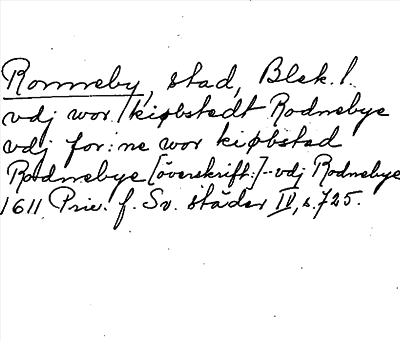 Ronneby, stad, Blek. l.
vdj wor kiøbstedt Rodnebye
vdj for:ne wor kiøbstad
Rodnebye [överskrift:]- vdj Rodnebye
1611 Priv. f. Sv. städer IV, s. 725.